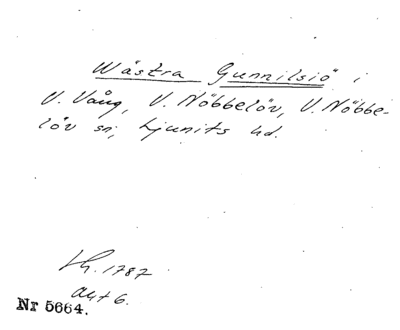 Wästra Gunnilsiö i
V. Vång, V. Nöbbelöv, V. Nöbbe-
löv sn, Ljunits hd.
Lh. 1787
akt 6.
Nr 5664.